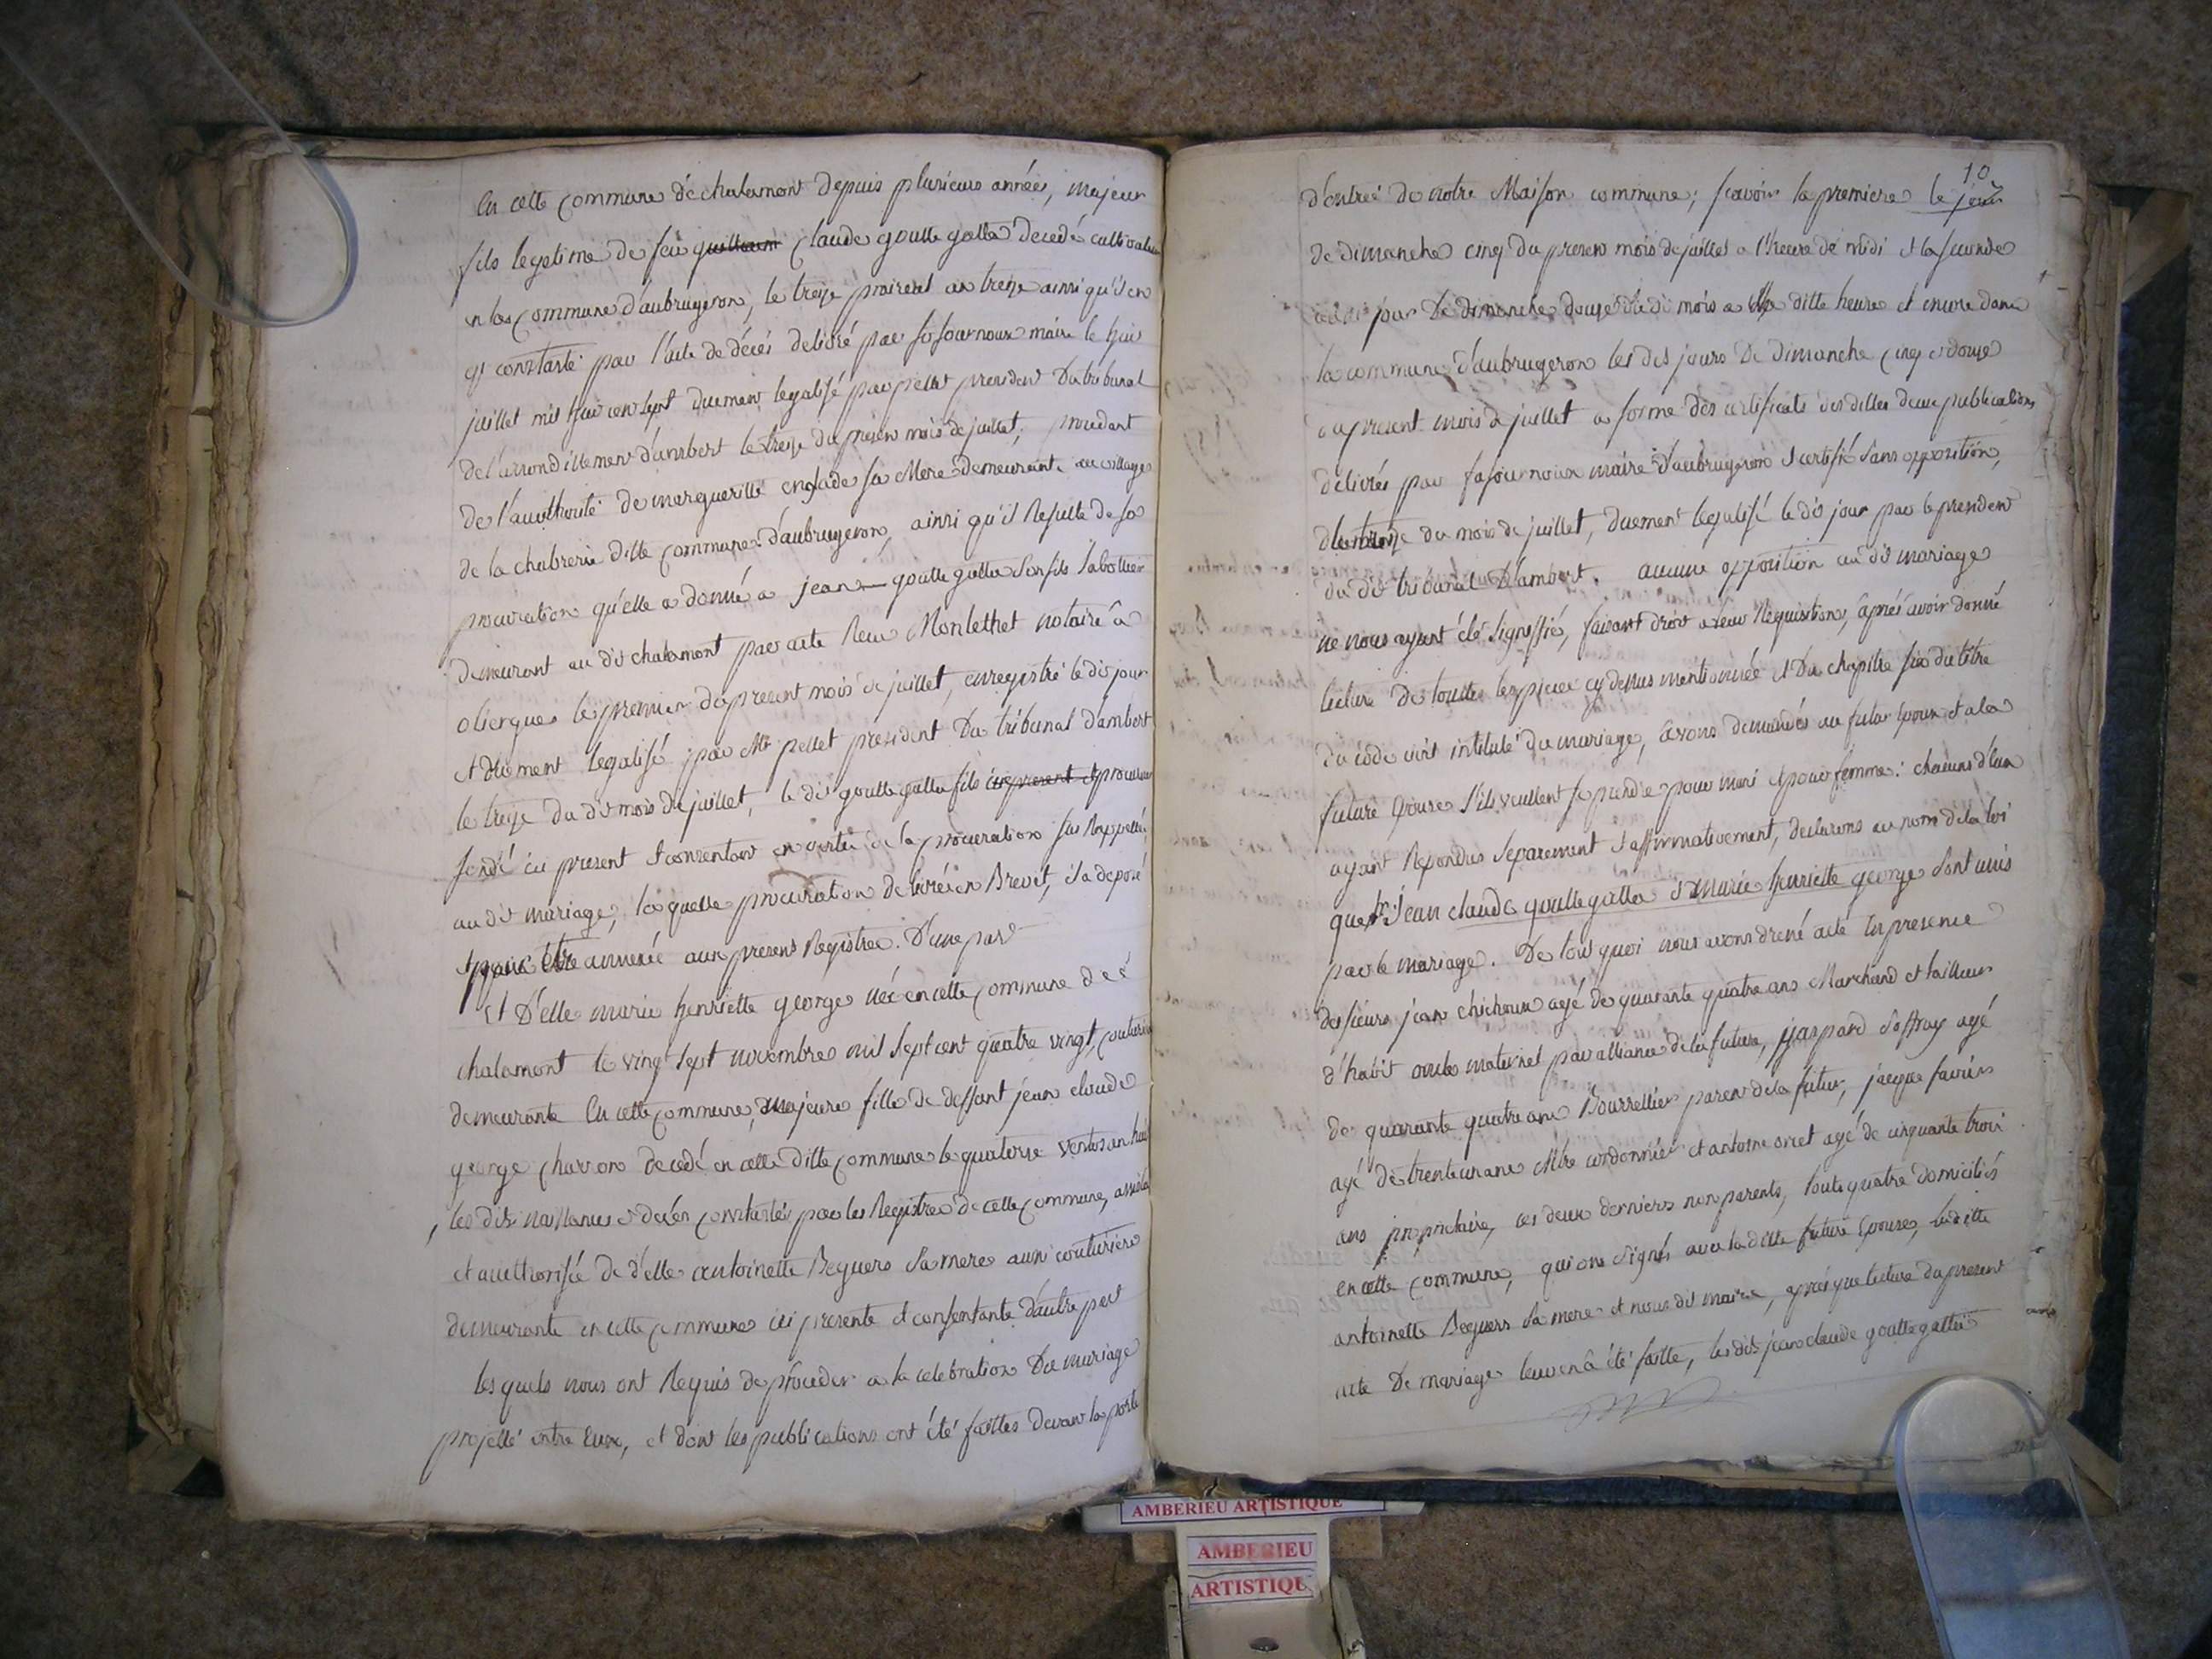 En cette Commune de chalamont depuis plusieurs années, majeur
fils legetime de feu guillaume Claude goutte gatta decedé cultivateur
en la Commune d'aubrugeron, le treize prairial an treize ainsi qu'il en
constasté par l'acte de décés delivré par maire le huit
juillet mil huit cent sept duement legalisé par pellet president Du tribunal
de l'arrondissement d'ambert le treize du present mois de juillet; procedant
de l'autthorité de margueritte sa Mere demeurante au village
de la chabrerie ditte Commune d'aubrugeron, ainsi qu'il Resulte de la
procuration qu'elle a donnée a jean goutte gatta son fils Sabottier
demeurant au dit chalamont par acte Reçu notaire â
oliergues le premier du present mois de juillet, enregistré le dit jour
et duement legalisé par Mr pellet president Du tribunal d'ambert
le treize du dit mois de juillet, le dit goutte gatta fils ici present et procureur
fondé ici present et consentant en vertu de la procuration sus Rappellée
au dit mariage, la quelle procuration delivrée en Brevet, il a deposé
pour être annexée aux presens Registres. D'une part
Et D'elle marie henriette george née en cette Commune de
chalamont le vingt sept novembre mil sept cent quatre vingt, couturiere
demeurante En cette Commune, majeure fille de deffunt jean claude
george Charron decedé en cette ditte Commune le quatorze ventos an huit
, les dits naissances et decés constatés par les Registres de cette Commune, assistée
et autthorisée de d'elle antoinette Beguers sa mere aussi couturiere
demeurante en cette Commune ici presente et consentante d'autre part
les quels nous ont Requis de proceder a la celebration Du mariage
projetté entre Eux, et dont les publications ont été faittes devant la porte
10
d'entrée de notre Maison commune; scavoir la premiere le jour
de dimanche cinq du present mois de juillet a l'heure de midi et la seconde
jour de dimanche douze du dit mois a la ditte heure et encore dans
la commune d'aubrugeron les dits jours De Dimanche cinq et douze
du present mois de juillet a forme des certificats des dittes deux publications
délivrés par maire d'aubrugeron et certifié sans opposition,
du mois de juillet, duement legalisé le dit jour par le president
du dit tribunal D'ambert. aucune opposition au dit mariage
ne nous ayant été signiffiée, faisant droit a leur Requisition, âprés avoir donné
lecture De toutes les pieces cy dessus mentionnées et Du chapitre six du titre
du côde civil intitulé du mariage, avons demandés au futur Epoux et a la
future Epouse s'ils veullent se prendre pour mari et pour femme: chacun d'eux
ayant Repondus separement et affirmativement, declarons au nom de la loi
que Jean claude goutte gatta et Marie henriette george sont unis
par le mariage. De tout quoi nous avons dressé acte En presence
des sieurs jean chichoux agé de quarante quatre ans Marchand et tailleur
d'habit oncle maternel par alliance de la future, gaspard Soffray agé
de quarante quatre ans Bourrellier parent de la futur, jacque favier
agé de trente un ans Mtre cordonnier et antoine orcet agé de cinquante trois
ans proprietaire, ces deux derniers non parents, touts quatre domiciliés
en cette Commune, qui ont signés avec la ditte future Epouse, laditte
antoinette Beguers sa mere et nous dit maire, aprés que lecture du present
acte De mariage leur en â été faitte, les dits jean claude goutte gatta
AMBERIEU ARTISTIQUE
AMBERIEU
ARTISTIQUE